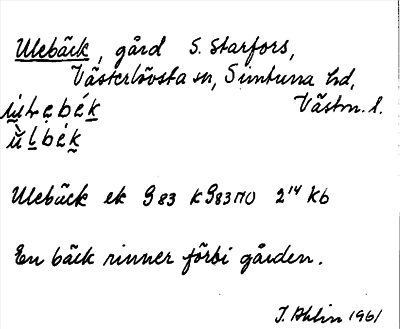 Ulebäck, gård S. Starfors,
Västerlövsta sn, Simtuna hd,
Västm. l.
Ulebäck ek G 83 KG83 NO 2 14 Kb
En bäck rinner förbi gården.
J. Ahlin 1961